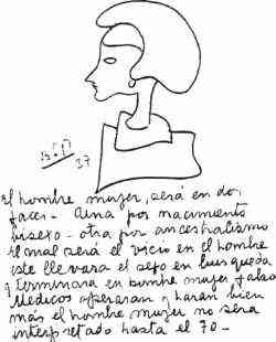 B.S.P
37
El hombre mujer, será en dos
faces - Una por nacimiento
bisexo - otra por ancestralismo
El mal será el vicio en el hombre
este llevara el sexo en busqueda
y terminara en hombre mujer falso
Medicos operaran y haran bien
más el hombre mujer no sera
interpretado hasta el 70 -